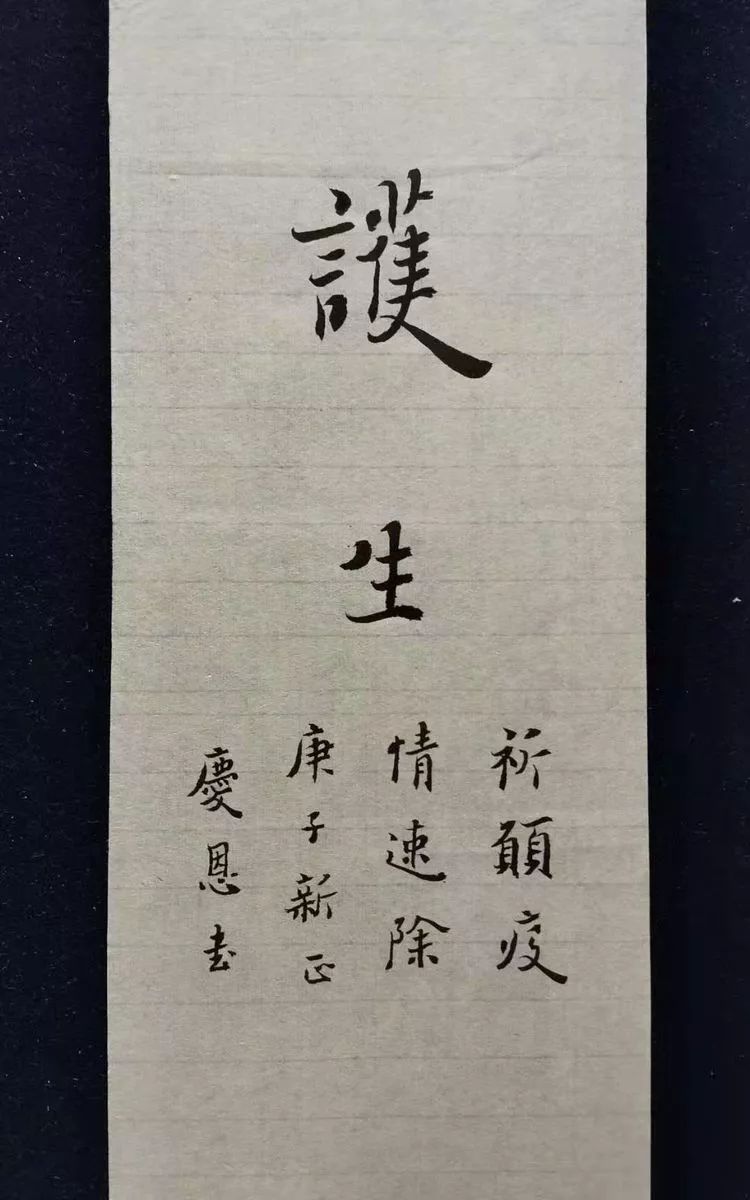 護
生
祈願疫
情速除
庚子新正
慶恩书